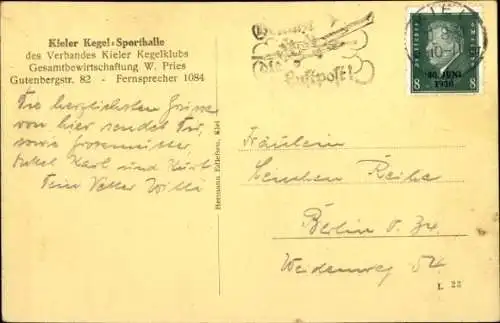 Kieler Kegel-Sporthalle
des Verbandes Kieler Kegelklubs
Gesamtbewirtschaftung W. Pries
Gutenbergstr. 82 - Fernsprecher 1084
Die herzlichsten Grüsse
von hier sendet Dir,
sowie Grossmutter,
Onkel Karl und Kurt
Dein Vetter Willi
Hermann Falleßen, Kiel
Luftpost!
KIEL
30. JUNI
1930
8 8
Fräulein
Lenchen Reihe
Berlin O. 34
Weidenweg 54
L 23